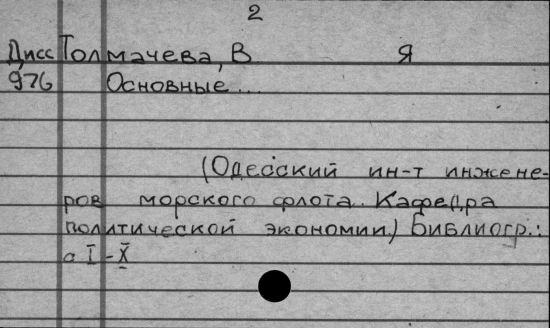 2
Дисс Толмачева, В Я
976 Основные...
(Одесский ин-т инжене-
ров морского флота. Кафедра
политической экономии.) Библиогр.:
с I-X